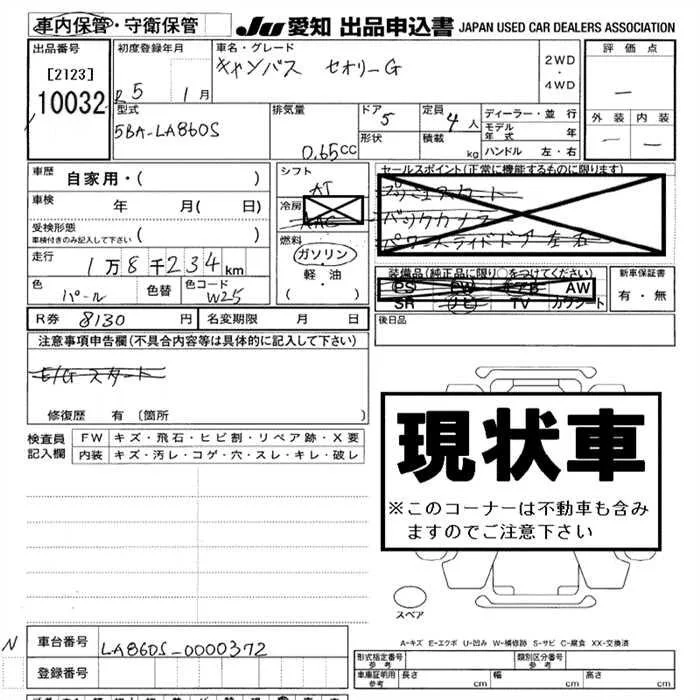 車内保管・守衛保管
JU 愛知 出品申込書 JAPAN USED CAR DEALERS ASSOCIATION
出品番号 初度登録年月 車名・グレード 評価点
[2123] R5 1月 キャンバス セオリーG 2WD・4WD ー
10032
型式 排気量 ドア 5 定員 4人 ディーラー・並行 外装 内装
5BA-LA860S 0.65cc 形状 積載 kg モデル年式 年 ー ー
ハンドル 左・右
車歴 自家用・( ) シフト AT セールスポイント(正常に機能するものに限ります)
車検 年 月( 日) 冷房 AAC プッシュスタート
受検形態 車検付きのみ記入して下さい ( ) バックカメラ
燃料 パワースライドドア左右
走行 1万8千234km ガソリン・軽・油 ( )
装備品(純正品に限り○をつけてください) 新車保証書
色 パール 色替 色コード W25 PS PW エアB AW 有・無
SR ナビ TV カワシート
R券 8130 円 名変期限 月 日 後日品
注意事項申告欄(不具合内容等は具体的に記入して下さい)
E/Gスタート
修復歴 有(箇所 )
現状車
※このコーナーは不動車も含み
ますのでご注意下さい
検査員記入欄 FW キズ・飛石・ヒビ割・リペア跡・X要
内装 キズ・汚レ・コゲ・穴・スレ・キレ・破レ
スペア
N 車台番号 LA860S-0000372
A-キズ E-エクボ U-凹み W-補修跡 S-サビ C-腐食 XX-交換済
登録番号
形式指定番号 参考 類別区分番号 参考
車庫証明用 参考 長さ cm 幅 cm 高さ cm